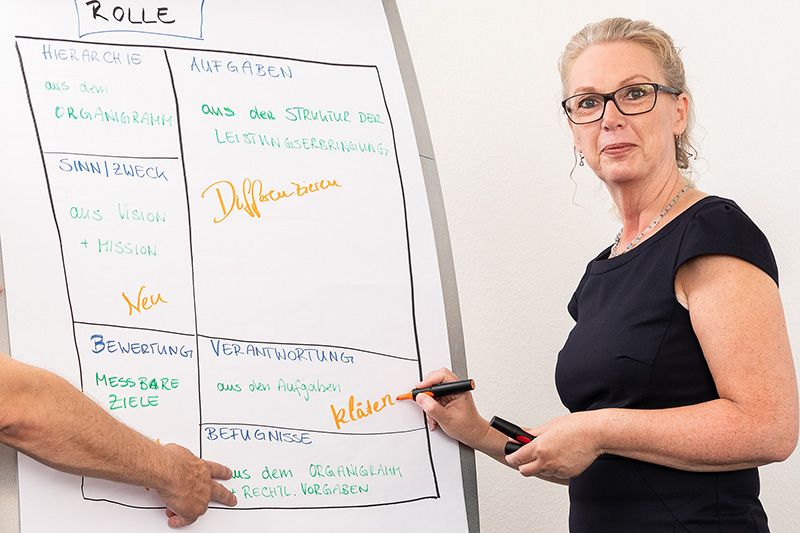 ROLLE
HIERARCHIE
aus dem
ORGANIGRAMM
AUFGABEN
aus der STRUKTUR DER
LEISTUNGSERBRINGUNG
Differenzieren
SINN/ZWECK
aus VISION
+ MISSION
Neu
BEWERTUNG
MESSBARE
ZIELE
VERANTWORTUNG
aus den Aufgaben
klären
BEFUGNISSE
aus dem ORGANIGRAMM
+ RECHTL. VORGABEN